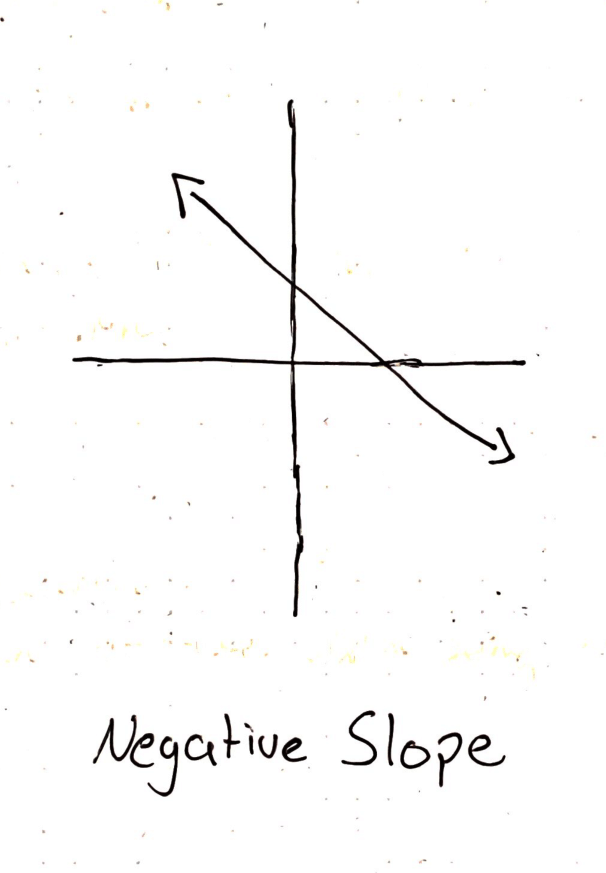 Negative Slope